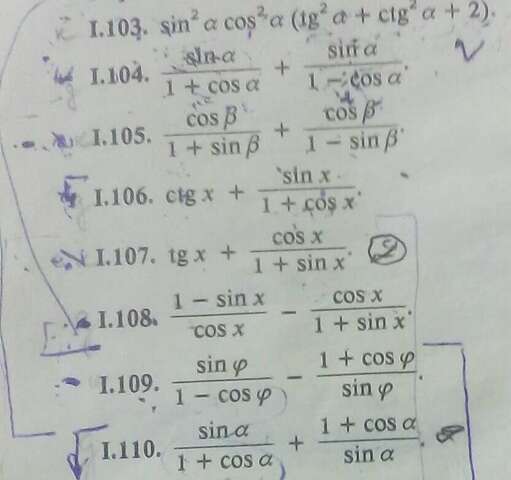 I.103. sin² α cos² α (tg² α + ctg² α + 2).
I.104. sin α / (1 + cos α) + sin α / (1 − cos α).
I.105. cos β / (1 + sin β) + cos β / (1 − sin β).
I.106. ctg x + sin x / (1 + cos x).
I.107. tg x + cos x / (1 + sin x). 2
I.108. (1 − sin x) / cos x − cos x / (1 + sin x).
I.109. sin φ / (1 − cos φ) − (1 + cos φ) / sin φ.
I.110. sin α / (1 + cos α) + (1 + cos α) / sin α.